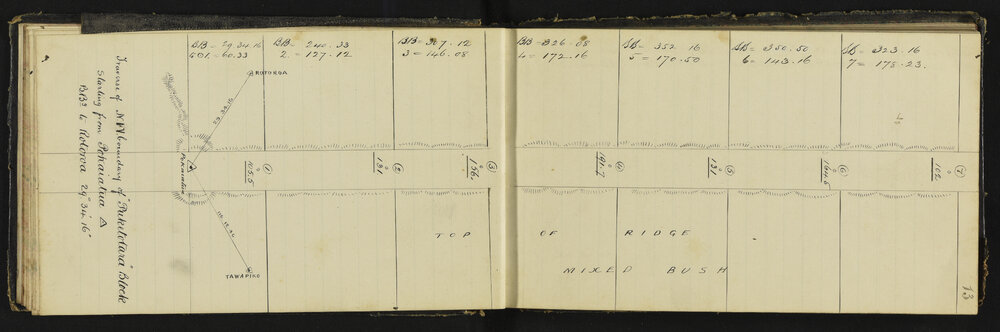 Traverse of N.W. boundary of "Puketotara" Block
starting from Pohaiatua △
BBs to Rotoroa 29°.34'.16"
BB = 29.34.16
θ1. = 60.33
BB = 240.33
2. = 127.12
BB = 307.12
3 = 146.08
BB = 326.08
4 = 172.16
BB = 352 16
5 = 170.50
BB = 350.50
6 = 143.16
BB = 323.16
7 = 178.23.
ROTOROA
29.34.16
TAWAPIKO
105.5
1
131
2
156.
3
191.7
4
131
5
164.5
6
102
7
TOP OF RIDGE
MIXED BUSH
13